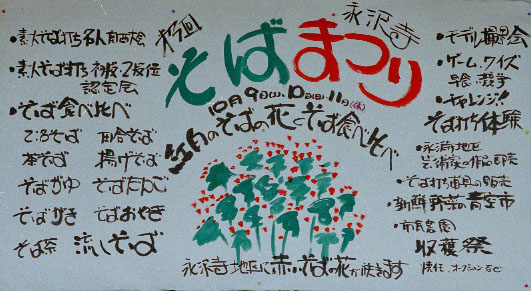 永沢寺
そばまつり
10月9日(土)、10日(日)、11日(祝)
紅白のそばの花とそば食べ比べ
・素人そば打ち名人
・素人そば打ち初段・2段位
認定会
・そば食べ比べ
田舎そば
本そば 揚げそば
そばがゆ そばだんご
そばがき そばおやき
そば茶 流しそば
・モデル撮影会
・ゲーム、クイズ
早食い競争
・チャレンジ!!
そば打ち体験
・永沢寺地区
芸術家の作品即売
・そば打ち道具の販売
・新鮮野菜の青空市
・市民農園
収穫祭
オークションなど
永沢寺地区に赤いそばの花が咲きます